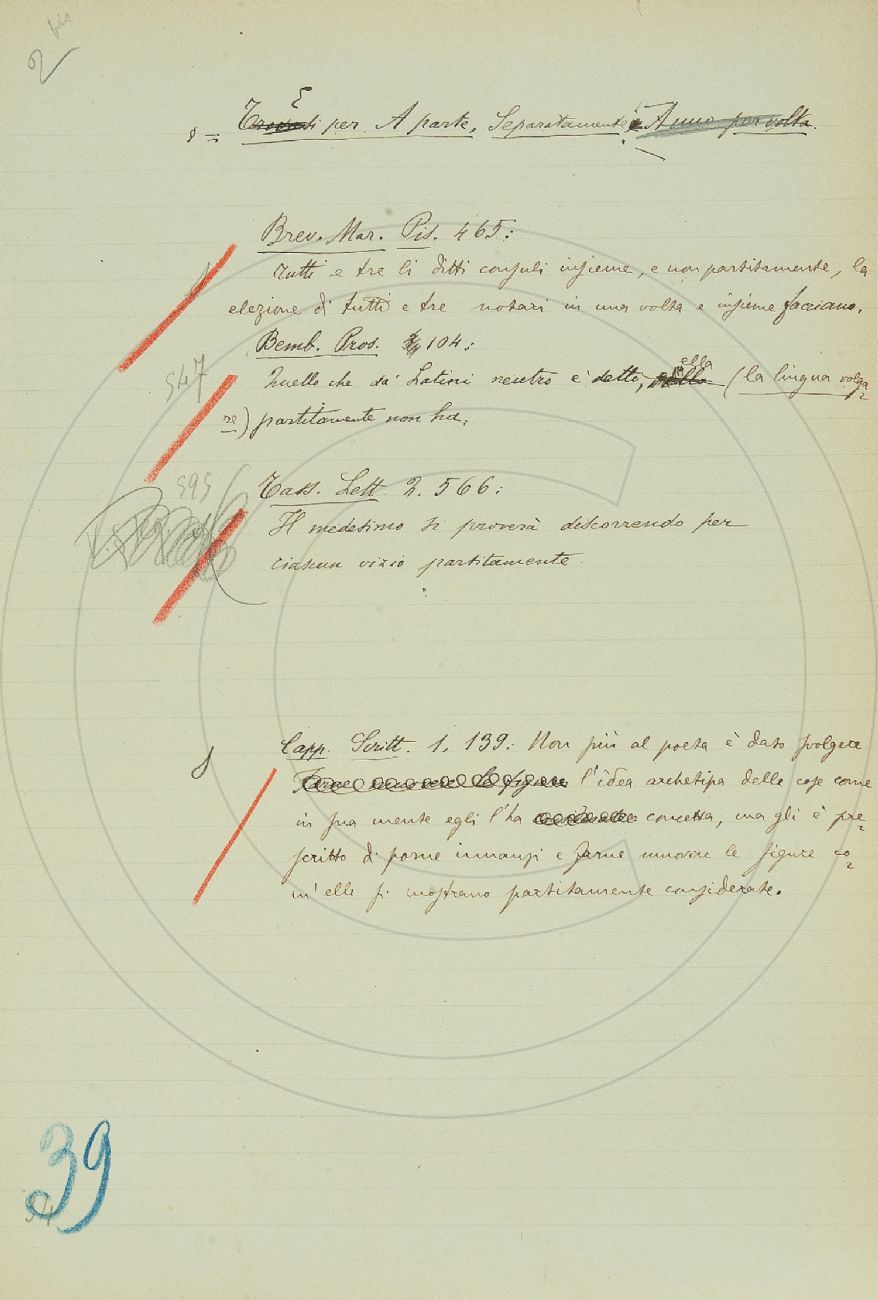 2 bis
E
§ = Trovasi per A parte, Separatamente; A uno per volta.
Brev. Mar. Pis. 465:
Tutti e tre li ditti consuli insieme, e non partitamente, la
elezione di tutti e tre notari in una volta e insieme facciano.
Bemb. Pros. 104:
547
ella
Quello che da' Latini neutro è detto, (la lingua volga-
re) partitamente non ha.
595
Tass. Lett. 2. 566:
Il medesimo si proverà discorrendo per
ciascun vizio partitamente.
Capp. Scritt. 1. 139: Non più al poeta è dato svolgere
farne muovere le figure l'idea archetipa delle cose come
in sua mente egli l'ha concetta, ma gli è pre-
scritto di porne innanzi e farne muovere le figure co-
m' elle si mostrano partitamente considerate.
39
54